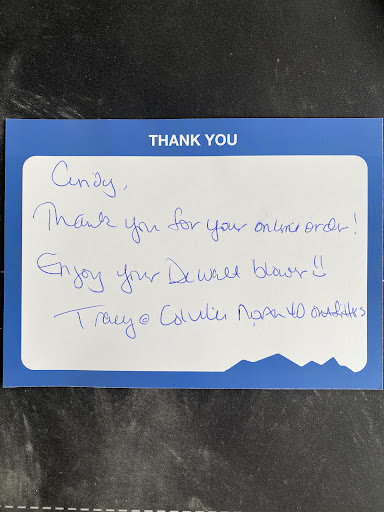 THANK YOU
Cindy,
Thank you for your online order!
Enjoy your DeWalt blower!!
Tracy @ North 40 Outfitters